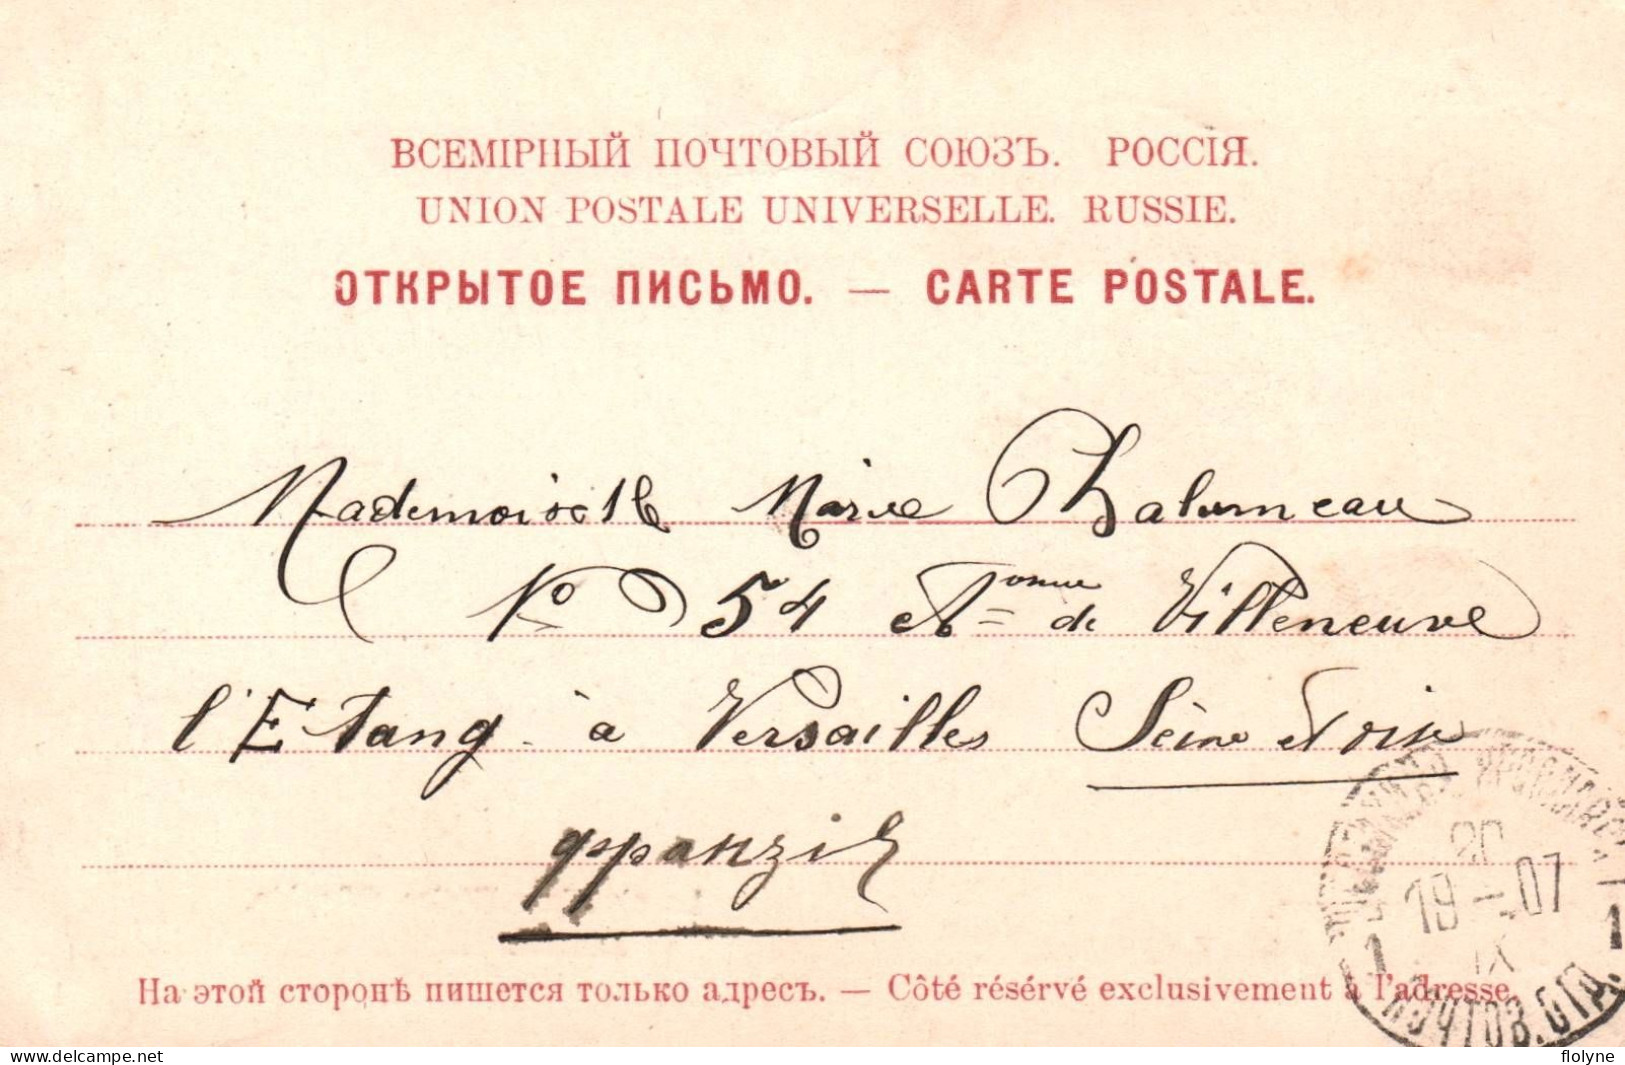 ВСЕМІРНЫЙ ПОЧТОВЫЙ СОЮЗЪ. РОССІЯ.
UNION POSTALE UNIVERSELLE. RUSSIE.
ОТКРЫТОЕ ПИСЬМО. — CARTE POSTALE.
Mademoiselle Marie Chalumeau
No 54 Avenue de Villeneuve
l'Etang à Versailles Seine et Oise
франзiя
20
19 — 07
IX
1 1
ПОЧТОВ. ОТД.
На этой сторонѣ пишется только адресъ. — Côté résérvé exclusivement à l'adresse.
flolyne